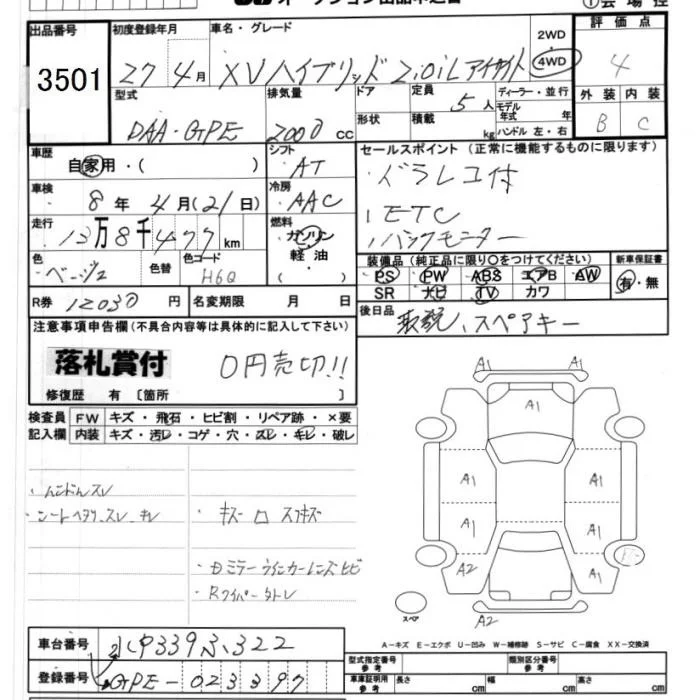 出品番号
3501
初度登録年月
27年4月
車名・グレード
XVハイブリッド 2.0iL アイサイト
2WD
4WD
評価点
4
外装 内装
B C
型式
DAA・GPE
排気量
2000 cc
ドア
形状
定員
5人
積載
kg
ディーラー・並行
モデル年式 年
ハンドル 左・右
車歴
自家用・( )
シフト
AT
車検
8年 4月(21日)
冷房
AAC
走行
13万8千477km
燃料
ガソリン
軽油
・( )
色
ベージュ
色替
色コード
H6Q
R券 12030円
名変期限 月 日
セールスポイント(正常に機能するものに限ります)
・ドラレコ付
・ETC
・バックモニター
装備品(純正品に限り〇をつけてください)
新車保証書
PS PW ABS エアB AW
SR ナビ TV カワ
有・無
後日品
取説、スペアキー
注意事項申告欄(不具合内容等は具体的に記入して下さい)
落札賞付
0円売切!!
修復歴 有 〔箇所 〕
検査員記入欄
FW キズ・飛石・ヒビ割・リペア跡・×要
内装 キズ・汚レ・コゲ・穴・スレ・キレ・破レ
・ハンドルスレ
・シートヘタリ、スレ、キレ
・キズ ロ スリキズ
・Rワイパー
A1
A1
A1
A1
A1
A1
A1
A1
A2
A2
スペア
A-キズ E-エクボ U-凹み W-補修跡 S-サビ C-腐食 XX-交換済
車台番号
登録番号
GPE-023397
型式指定番号 参考
類別区分番号 参考
車庫証明用 参考
長さ cm
幅 cm
高さ cm